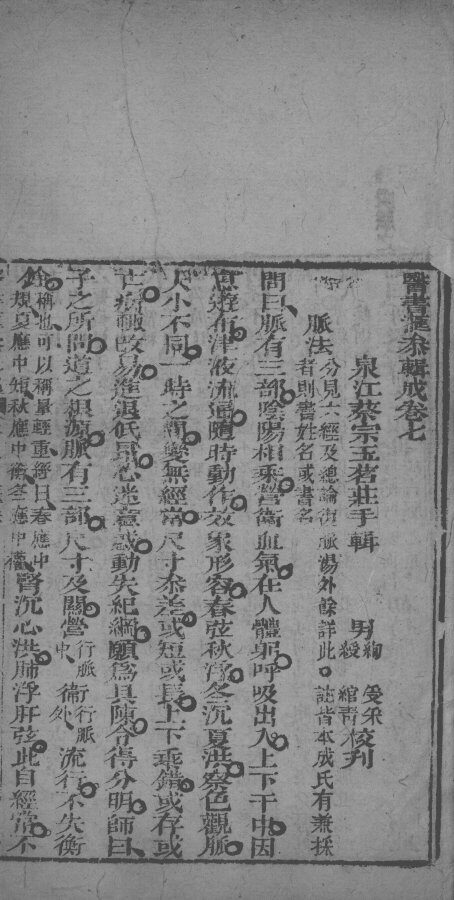 醫書滙參輯成卷七
泉江蔡宗玉茗莊手輯 男絢 綬 綰青 受采 校刊
脈法分見六經及總論街脈湯外餘詳此。註皆本成氏有兼採
者則書姓名或書名
問曰脈有三部陰陽相乘營衛血氣在人體躬呼吸出入上下于中因
息遊布津液流通隨時動作效象形容春弦秋浮冬沉夏洪察色觀脈
大小不同一時之間變無經常尺寸參差或短或長上下乖錯或存或
亡病輒改易進退低昂心迷意惑動失紀綱願為具陳令得分明師曰
子之所問道之根源脈有三部尺寸及關營行脈中衛行脈外流行不失衡
銓稱也可以稱量輕重經曰春應中規夏應中矩秋應中衡冬應中權腎沉心洪肺浮肝弦此自經常不